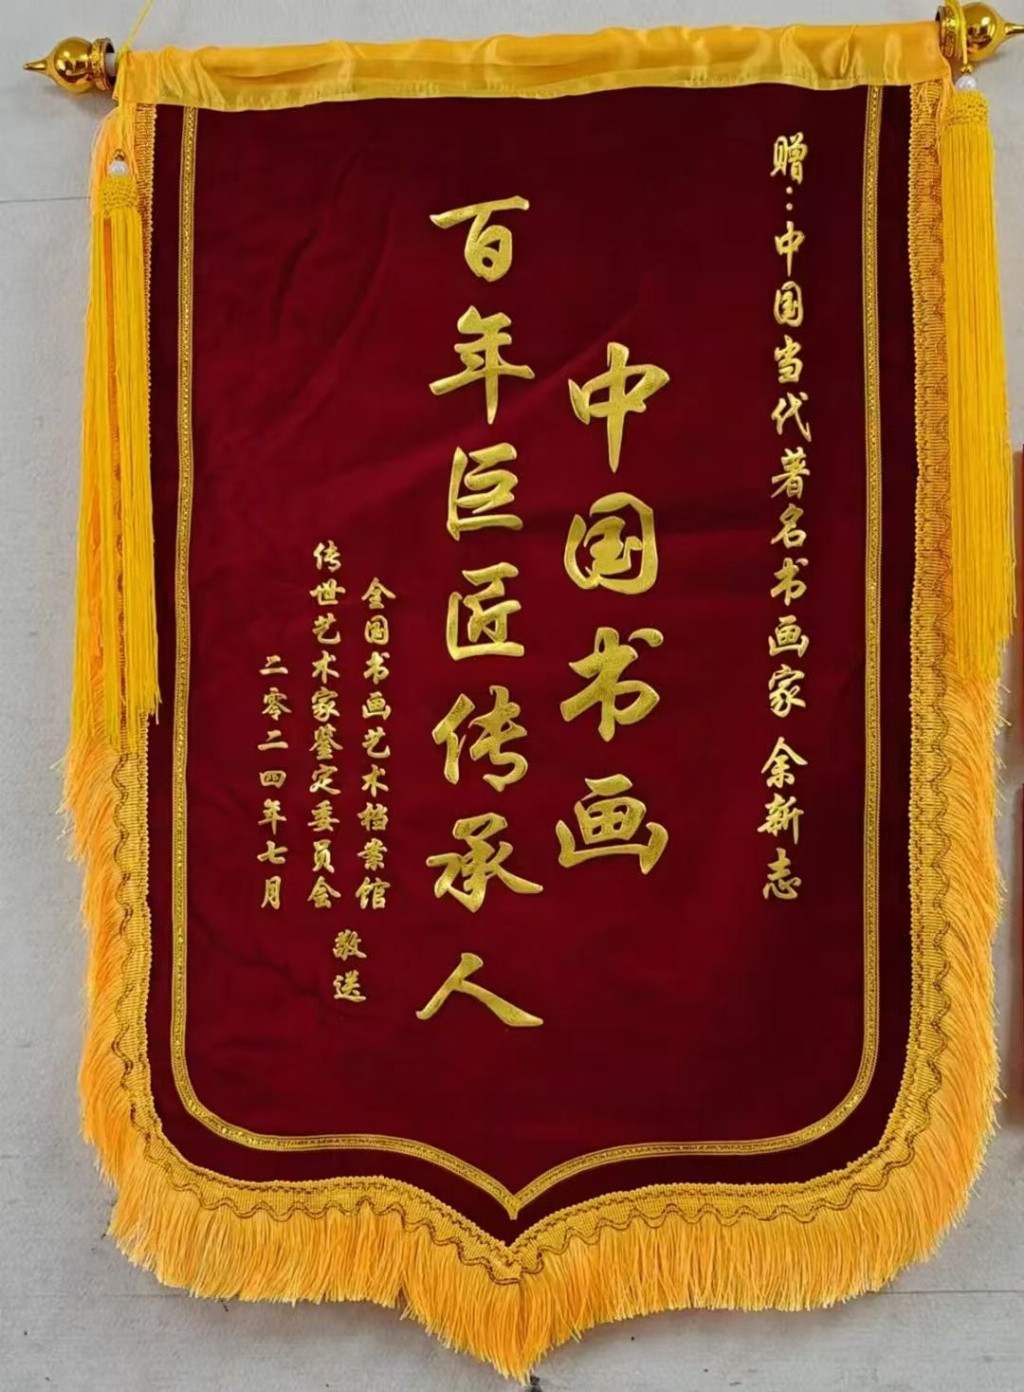 赠：中国当代著名书画家 余新志
中国书画
百年巨匠传承人
全国书画艺术档案馆
传世艺术家鉴定委员会
敬送
二零二四年七月